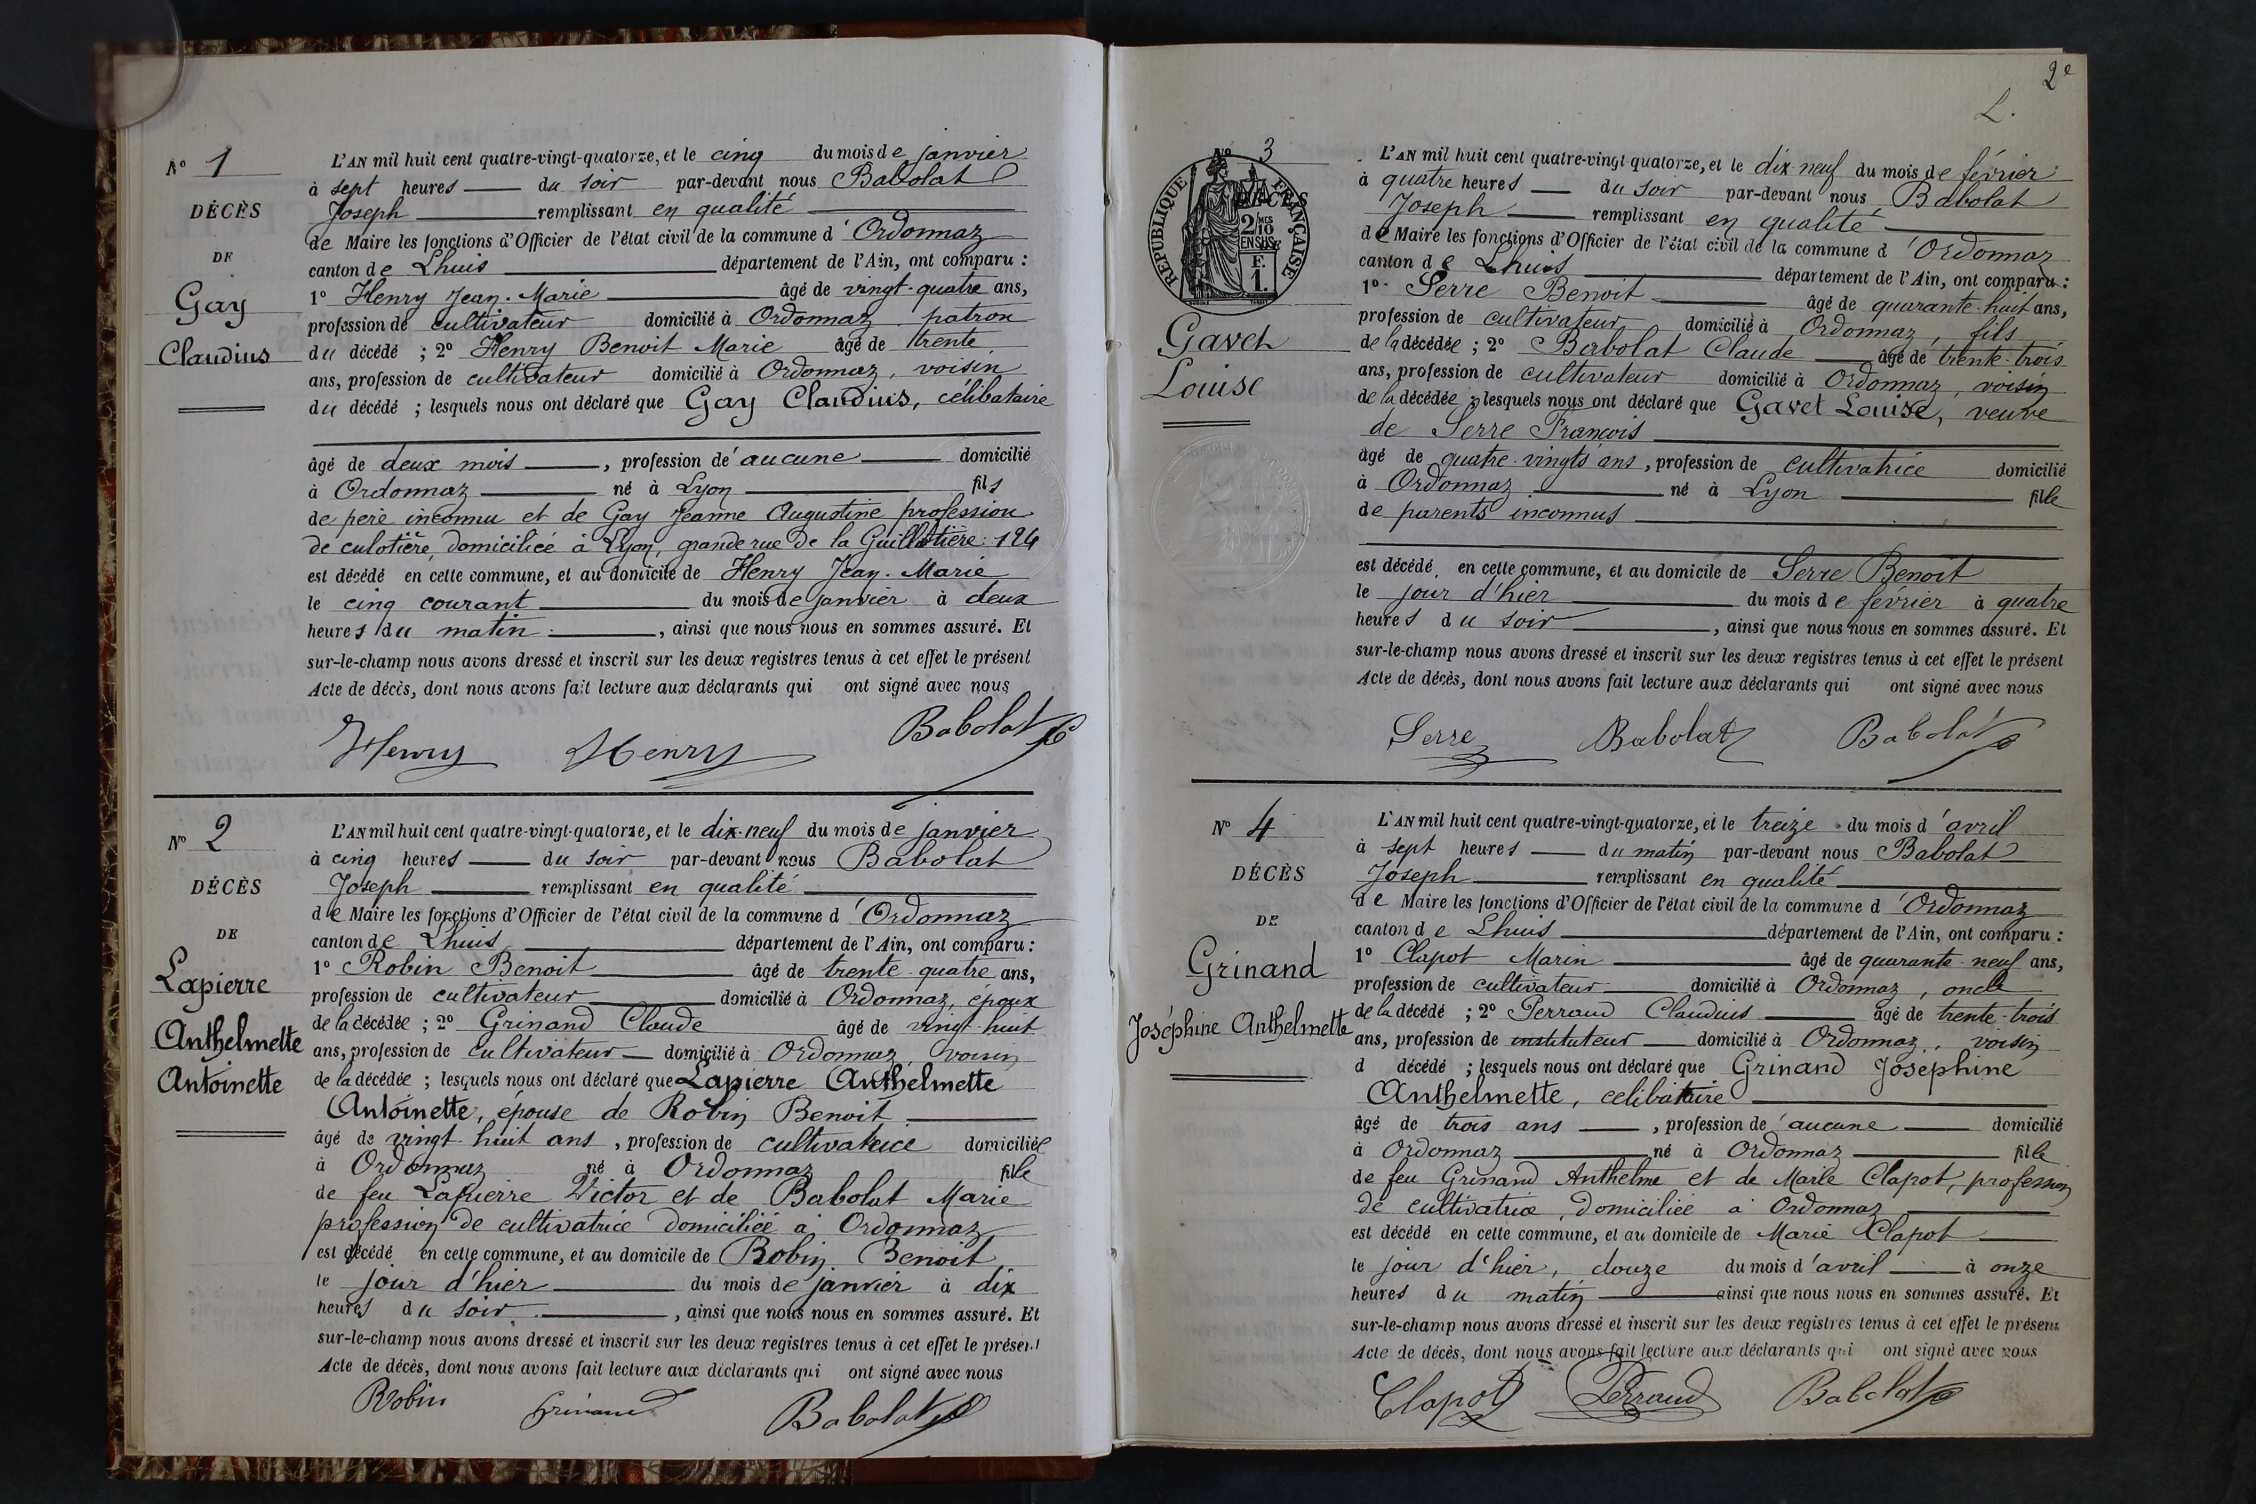 N° 1
DÉCÈS
DE
Gay
Claudius
L'AN mil huit cent quatre-vingt-quatorze, et le cinq du mois de janvier
à sept heures du soir par-devant nous Babolat
Joseph remplissant en qualité
de Maire les fonctions d'Officier de l'état civil de la commune d'Ordonnaz
canton de Lhuis département de l'Ain, ont comparu :
1° Henry Jean-Marie âgé de vingt-quatre ans,
profession de cultivateur domicilié à Ordonnaz patron
du décédé ; 2° Henry Benoit Marie âgé de trente
ans, profession de cultivateur domicilié à Ordonnaz, voisin
du décédé ; lesquels nous ont déclaré que Gay Claudius, célibataire
âgé de deux mois, profession d'aucune domicilié
à Ordonnaz né à Lyon fils
de père inconnu et de Gay Jeanne Augustine profession
de culotière, domiciliée à Lyon, grande rue de la Guillotière: 124
est décédé en cette commune, et au domicile de Henry Jean-Marie
le cinq courant du mois de janvier à deux
heures du matin, ainsi que nous nous en sommes assuré. Et
sur-le-champ nous avons dressé et inscrit sur les deux registres tenus à cet effet le présent
Acte de décès, dont nous avons fait lecture aux déclarants qui ont signé avec nous
Henry Henry Babolat
N° 2
DÉCÈS
DE
Lapierre
Anthelmette
Antoinette
L'AN mil huit cent quatre-vingt-quatorze, et le dix-neuf du mois de janvier
à cinq heures du soir par-devant nous Babolat
Joseph remplissant en qualité
de Maire les fonctions d'Officier de l'état civil de la commune d'Ordonnaz
canton de Lhuis département de l'Ain, ont comparu :
1° Robin Benoit âgé de trente-quatre ans,
profession de cultivateur domicilié à Ordonnaz, époux
de la décédée ; 2° Grinand Claude âgé de vingt-huit
ans, profession de cultivateur domicilié à Ordonnaz, voisin
de la décédée ; lesquels nous ont déclaré que Lapierre Anthelmette
Antoinette, épouse de Robin Benoit
âgé de vingt-huit ans, profession de cultivatrice domiciliée
à Ordonnaz né à Ordonnaz fille
de feu Lapierre Victor et de Babolat Marie
profession de cultivatrice domiciliée à Ordonnaz
est décédé en cette commune, et au domicile de Robin Benoit
le jour d'hier du mois de janvier à dix
heures du soir, ainsi que nous nous en sommes assuré. Et
sur-le-champ nous avons dressé et inscrit sur les deux registres tenus à cet effet le présent
Acte de décès, dont nous avons fait lecture aux déclarants qui ont signé avec nous
Robin Grinand Babolat
2e
L.
N° 3
DÉCÈS
RÉPUBLIQUE FRANÇAISE
2/10 MES
EN SUS
F.
1.
Gavet
Louise
L'AN mil huit cent quatre-vingt-quatorze, et le dix-neuf du mois de février
à quatre heures du soir par-devant nous Babolat
Joseph remplissant en qualité
de Maire les fonctions d'Officier de l'état civil de la commune d'Ordonnaz
canton de Lhuis département de l'Ain, ont comparu :
1° Serre Benoit âgé de quarante-huit ans,
profession de cultivateur domicilié à Ordonnaz, fils
de la décédée ; 2° Babolat Claude âgé de trente-trois
ans, profession de cultivateur domicilié à Ordonnaz, voisin
de la décédée ; lesquels nous ont déclaré que Gavet Louise, veuve
de Serre François
âgé de quatre-vingts ans, profession de cultivatrice domicilié
à Ordonnaz né à Lyon fille
de parents inconnus
est décédé en cette commune, et au domicile de Serre Benoit
le jour d'hier du mois de février à quatre
heures du soir, ainsi que nous nous en sommes assuré. Et
sur-le-champ nous avons dressé et inscrit sur les deux registres tenus à cet effet le présent
Acte de décès, dont nous avons fait lecture aux déclarants qui ont signé avec nous
Serre Babolat Babolat
N° 4
DÉCÈS
DE
Grinand
Joséphine Anthelmette
L'AN mil huit cent quatre-vingt-quatorze, et le treize du mois d'avril
à sept heures du matin par-devant nous Babolat
Joseph remplissant en qualité
de Maire les fonctions d'Officier de l'état civil de la commune d'Ordonnaz
canton de Lhuis département de l'Ain, ont comparu :
1° Clapot Marin âgé de quarante-neuf ans,
profession de cultivateur domicilié à Ordonnaz, oncle
de la décédé ; 2° Perraud Claudius âgé de trente-trois
ans, profession de instituteur domicilié à Ordonnaz, voisin
d décédé ; lesquels nous ont déclaré que Grinand Joséphine
Anthelmette, celibataire
âgé de trois ans, profession d'aucune domicilié
à Ordonnaz né à Ordonnaz fille
de feu Grinand Anthelme et de Marie Clapot, profession
de cultivatrice, domiciliée à Ordonnaz
est décédé en cette commune, et au domicile de Marie Clapot
le jour d'hier, douze du mois d'avril à onze
heures du matin ainsi que nous nous en sommes assuré. Et
sur-le-champ nous avons dressé et inscrit sur les deux registres tenus à cet effet le présent
Acte de décès, dont nous avons fait lecture aux déclarants qui ont signé avec nous
Clapot Perraud Babolat